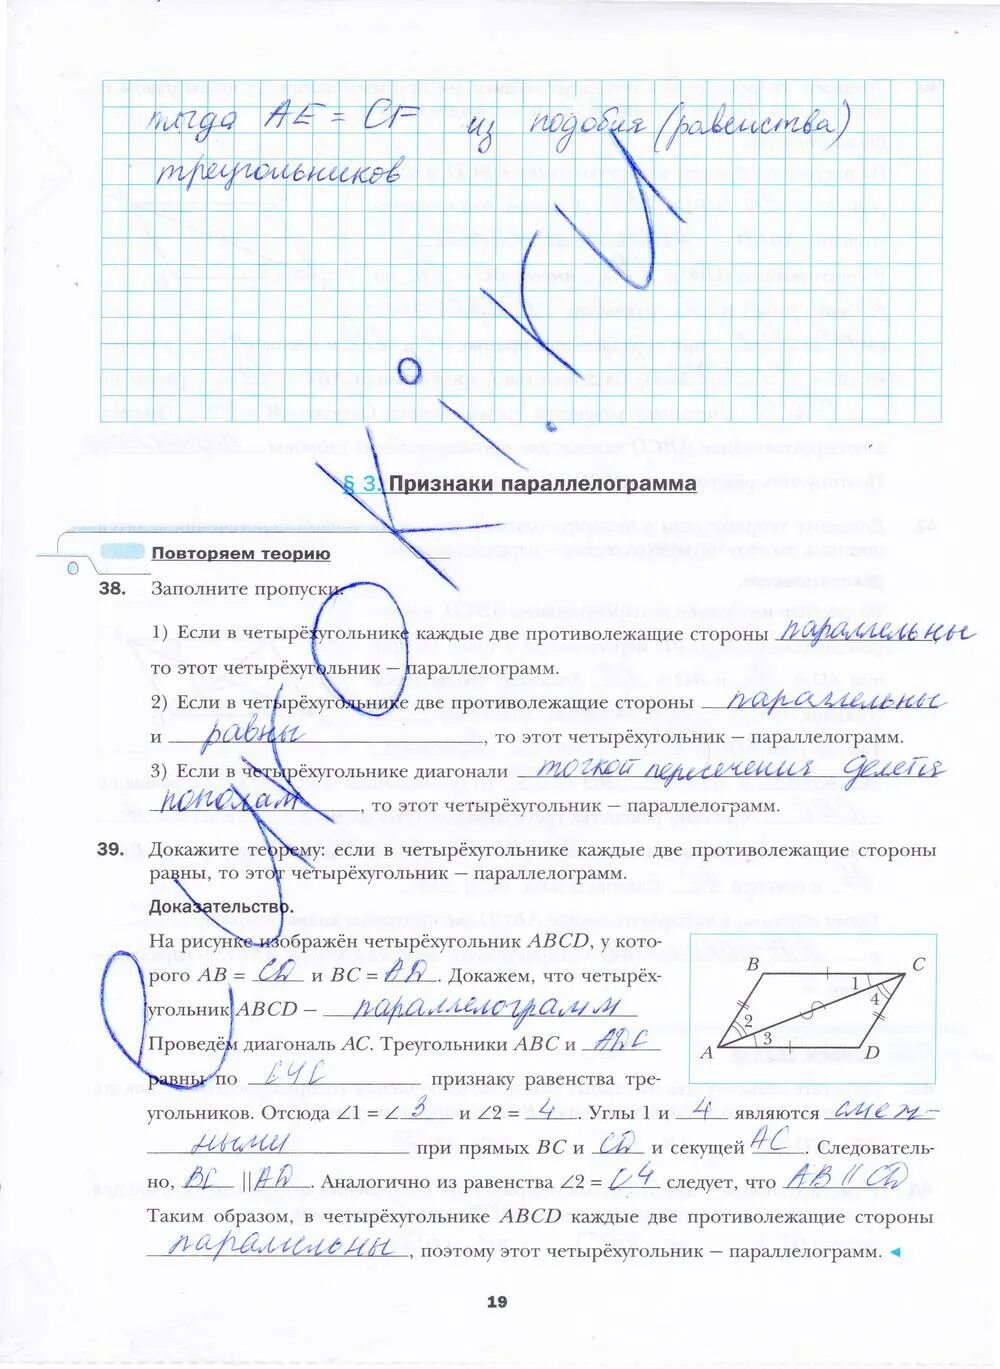 тогда AE = CF из подобия (равенства)
треугольников
§ 3. Признаки параллелограмма
Повторяем теорию
38. Заполните пропуски.
1) Если в четырёхугольнике каждые две противолежащие стороны параллельны
то этот четырёхугольник – параллелограмм.
2) Если в четырёхугольнике две противолежащие стороны параллельны
и равны, то этот четырёхугольник – параллелограмм.
3) Если в четырёхугольнике диагонали точкой пересечения делятся
пополам, то этот четырёхугольник – параллелограмм.
39. Докажите теорему: если в четырёхугольнике каждые две противолежащие стороны
равны, то этот четырёхугольник – параллелограмм.
Доказательство.
На рисунке изображён четырёхугольник ABCD, у кото-
рого AB = CD и BC = AD. Докажем, что четырёх-
угольник ABCD – параллелограмм
Проведём диагональ AC. Треугольники ABC и ADC
равны по ССС признаку равенства тре-
угольников. Отсюда ∠1 = ∠ 3 и ∠2 = 4. Углы 1 и 4 являются смеж-
ными при прямых BC и CD и секущей AC. Следователь-
но, BC || AD. Аналогично из равенства ∠2 = ∠4 следует, что AB || CD
Таким образом, в четырёхугольнике ABCD каждые две противолежащие стороны
параллельны, поэтому этот четырёхугольник – параллелограмм. ◄
B C
1
4
2
3
A D
19